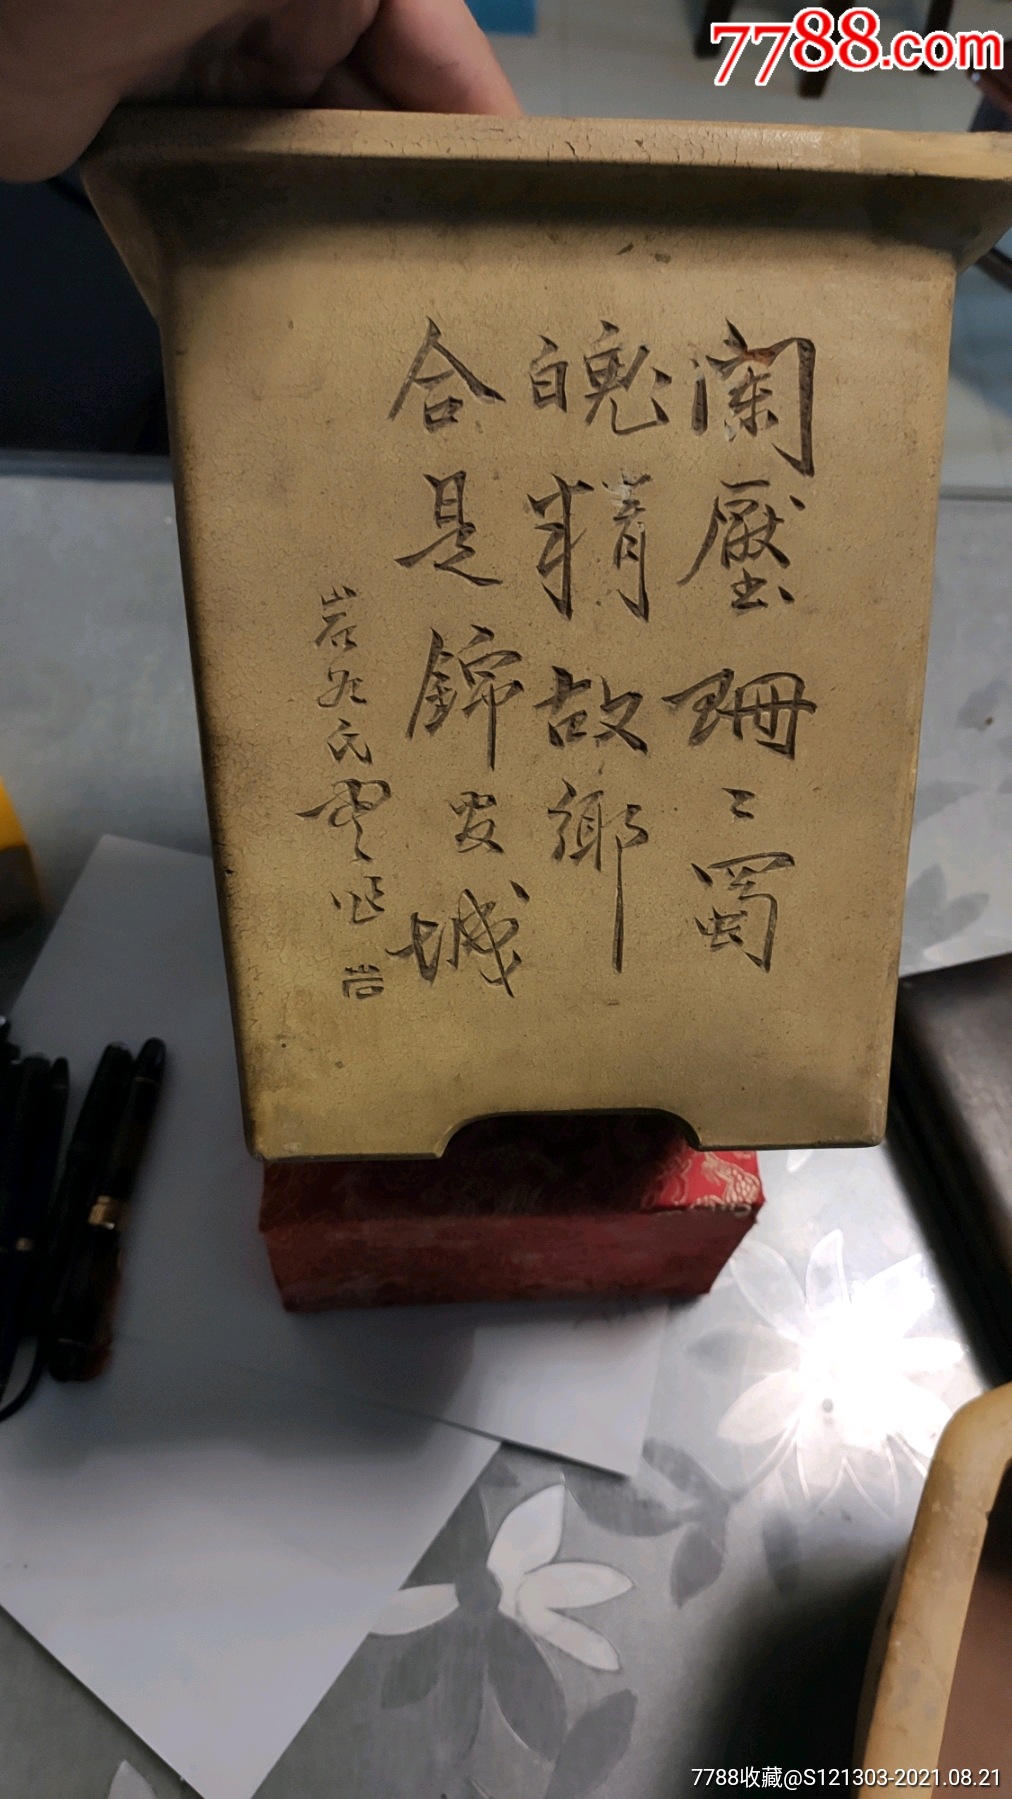 7788.com
瀾壓珊〻蜀
魄精故鄉
合是錦官城
岩氏作
岩
7788收藏@S121303-2021.08.21